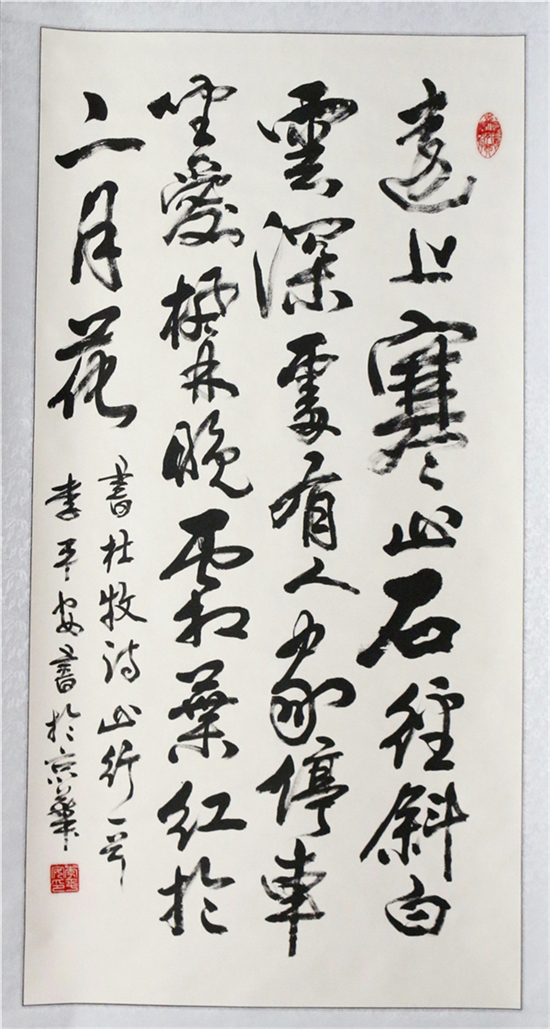 遠上寒山石徑斜白
雲深處有人家停車
坐愛楓林晚霜葉紅於
二月花
書杜牧詩山行一首
李平安書於京華